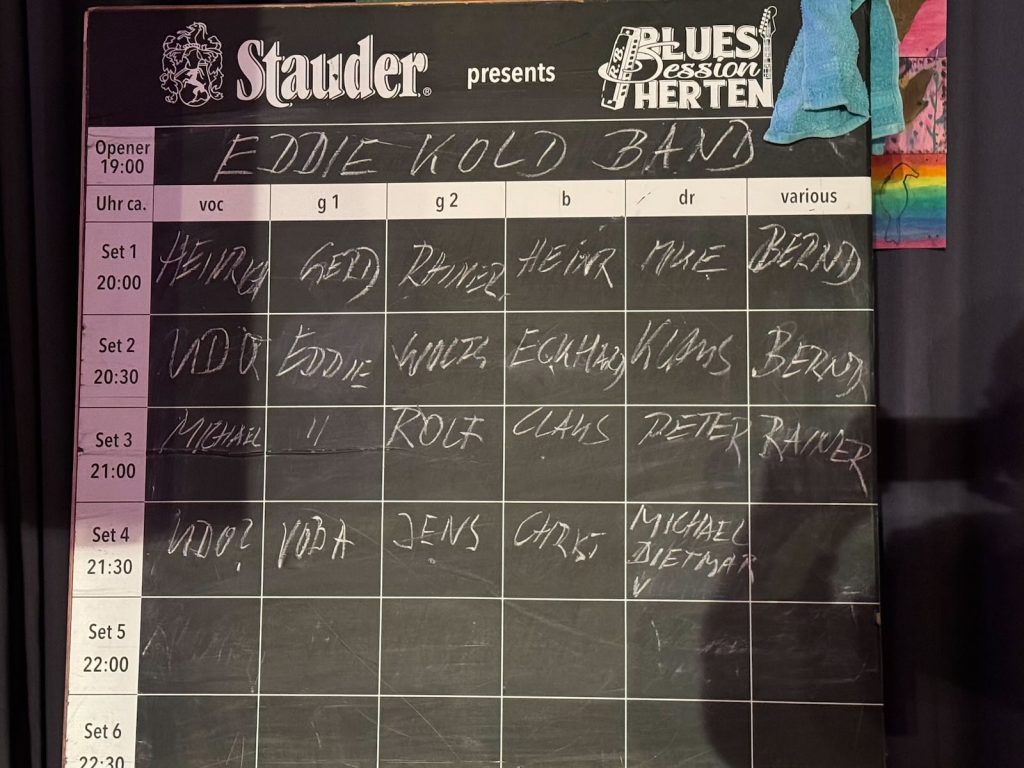 Stauder®
presents
R.B. BLUES
Session
HERTEN
Opener
19:00
EDDIE KOLD BAND
Uhr ca. voc g 1 g 2 b dr various
Set 1
20:00
HEINRICH GERD RAINER HEINR MIKE BERND
Set 2
20:30
UDO EDDIE ECKHARD KLAUS BERND
Set 3
21:00
MICHAEL " ROLF CLAUS PETER RAINER
Set 4
21:30
UDO? VODA JENS MICHAEL
DIETMAR
Set 5
22:00
Set 6
22:30